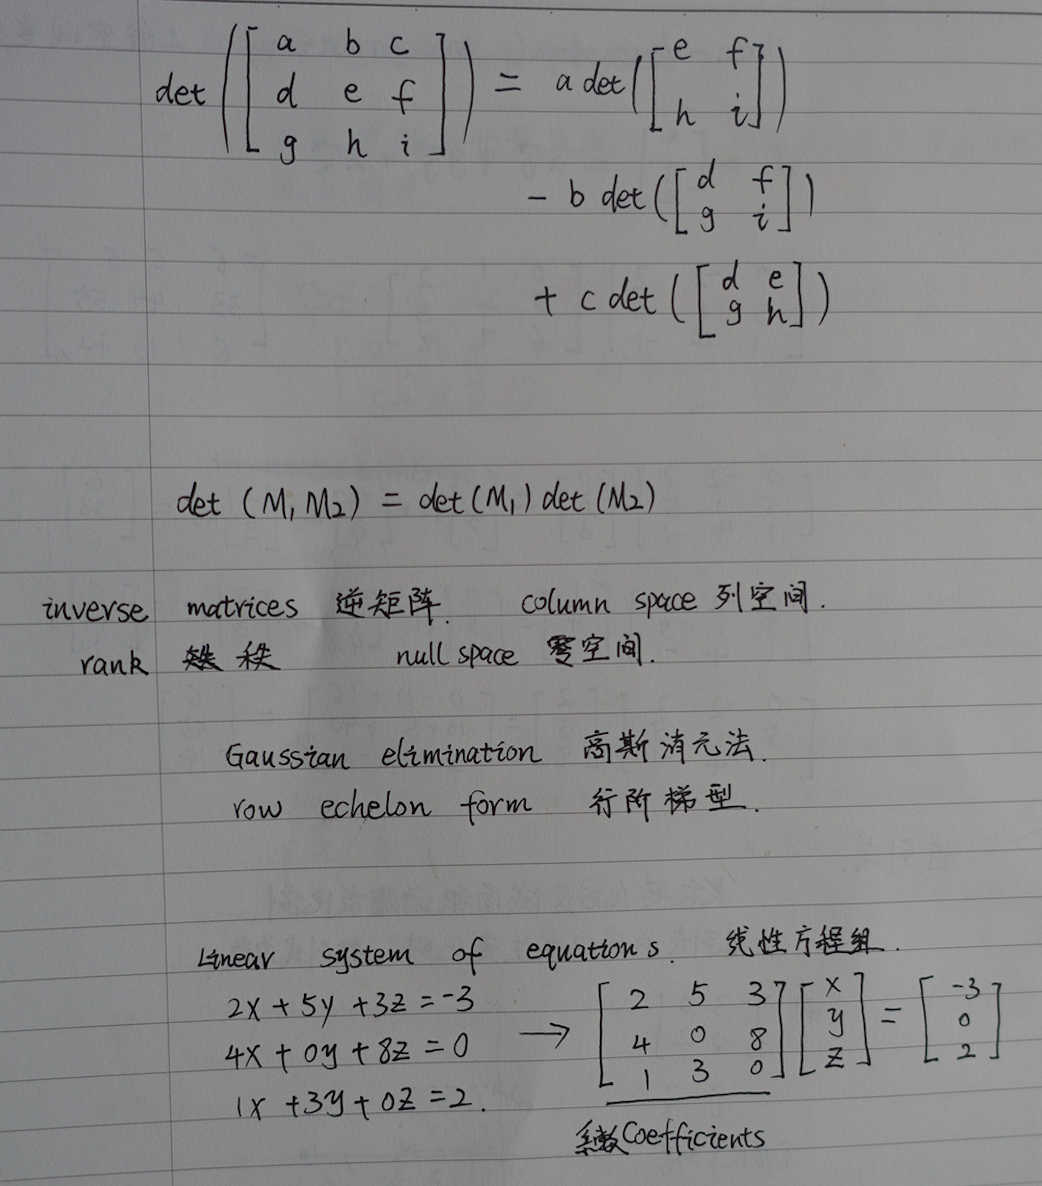 det([a b c
d e f
g h i]) = a det([e f
h i])
- b det([d f
g i])
+ c det([d e
g h])
det (M₁ M₂) = det (M₁) det (M₂)
inverse matrices 逆矩阵. column space 列空间.
rank 秩 null space 零空间.
Gaussian elimination 高斯消元法.
row echelon form 行阶梯型.
Linear system of equations. 线性方程组.
2x + 5y + 3z = -3
4x + 0y + 8z = 0
1x + 3y + 0z = 2.
→ [2 5 3
4 0 8
1 3 0] [x
y
z] = [-3
0
2]
系数 Coefficients